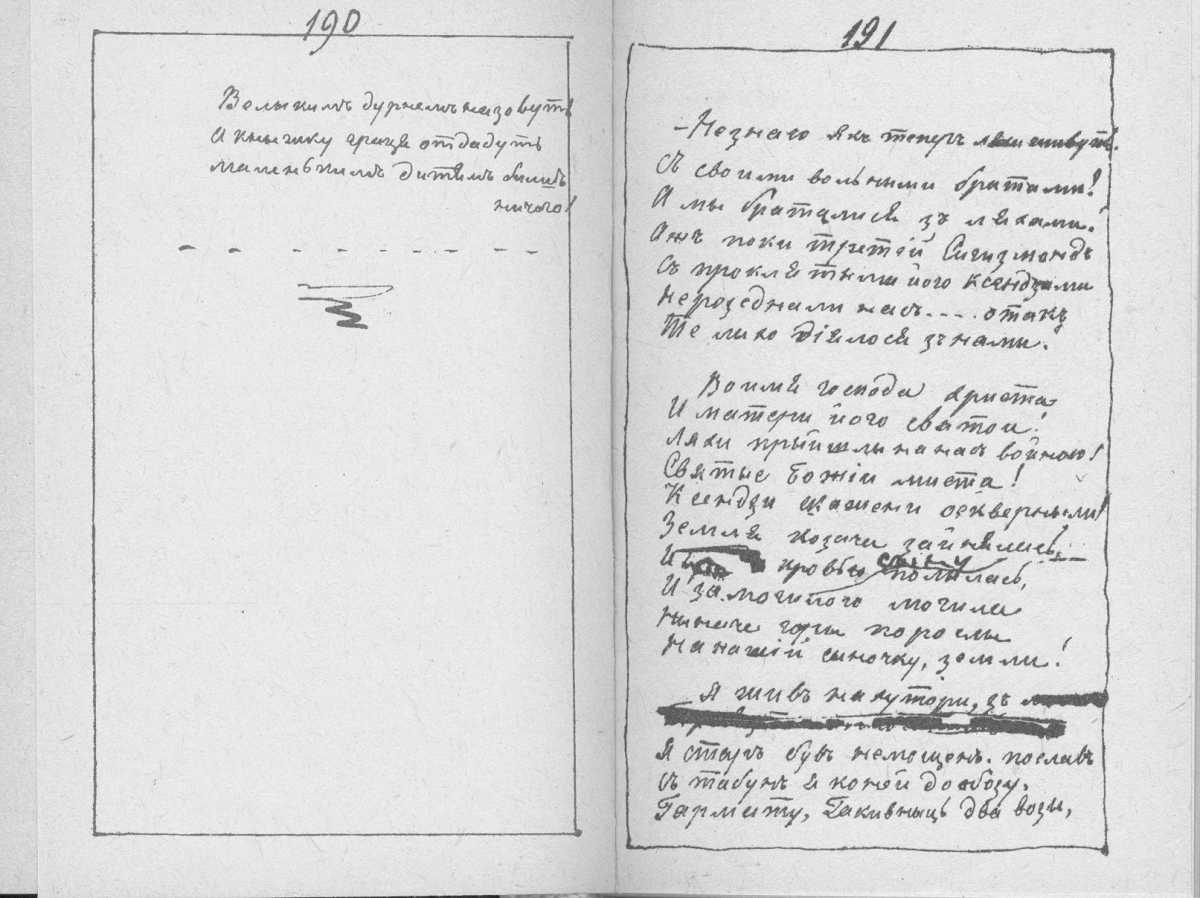 190
Велыкимъ дурнемъ назовутъ
А кныжку гратця отдадутъ
маленькимъ дитямъ бильшъ
ничого!
191
—Незнаю якъ теперъ ляхи живутъ.
Съ своими вольными братами!
А мы браталися зъ ляхами!
Ажъ поки третій Сигизмондъ
Съ проклятыми його ксендзами
Нерозеднали насъ.... отакъ
Те лихо діялося зъ нами!
Во имя господа христа
И матери його святои!
Ляхи прыйшлы на насъ войною!
Святые Божіи миста!
Ксендзи скажени осквернылы!
Земля козача зайнялась,
И кровью сыну полылась,
И за могилою могила
Ныначе горы порослы
На нашій сыночку, земли!
Я живъ на хутори, зъ
Я старъ бувъ немощенъ. пославъ
Съ табуня коней до обозу.
Гармату, Гакивныць два возы,